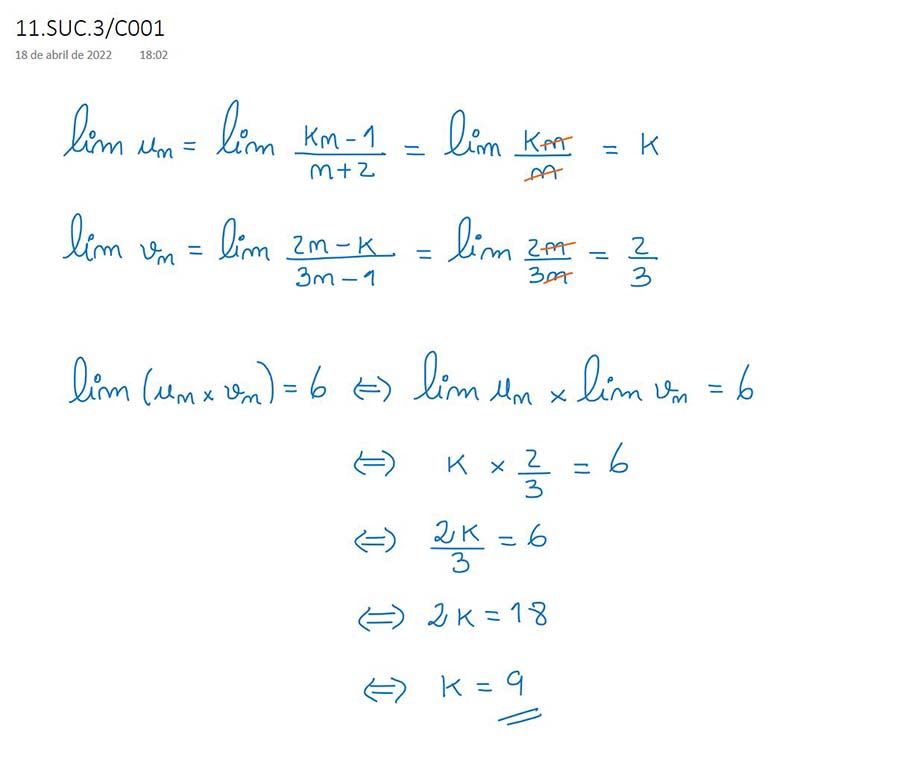 11.SUC.3/C001
18 de abril de 2022 18:02
lim uₙ = lim (kn − 1)/(n + 2) = lim kn/n = k
lim vₙ = lim (2n − k)/(3n − 1) = lim 2n/3n = 2/3
lim (uₙ × vₙ) = 6 ⇔ lim uₙ × lim vₙ = 6
⇔ k × 2/3 = 6
⇔ 2k/3 = 6
⇔ 2k = 18
⇔ k = 9